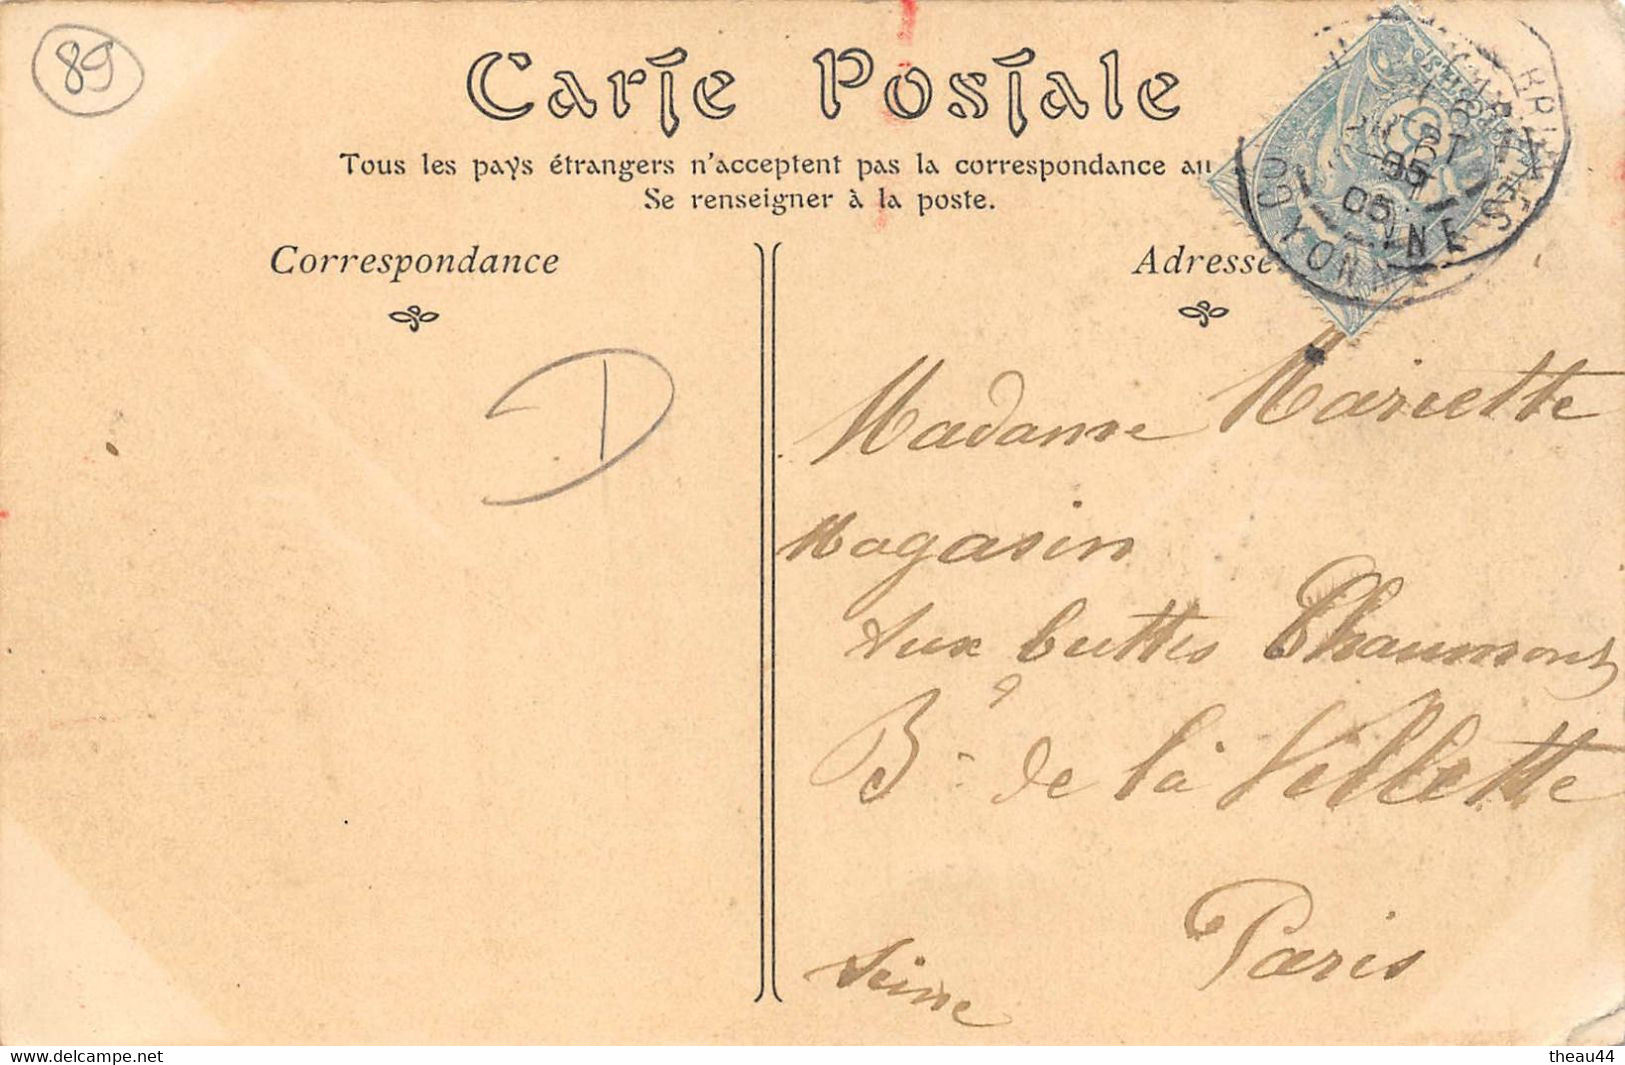 89
Carte Postale
Tous les pays étrangers n'acceptent pas la correspondance au
Se renseigner à la poste.
Correspondance
Adresse
YONNE
05
D
Madame Mariette
Magasin
Aux buttes Chaumont
Bd de la Villette
Paris
Seine
delcampe.net
theau44